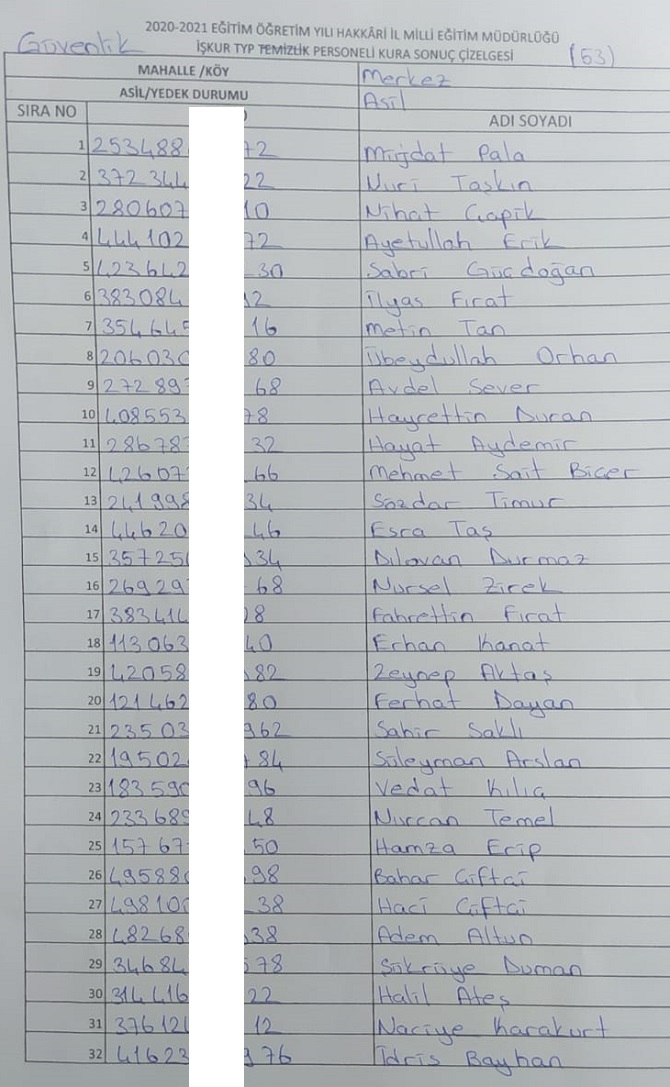 2020-2021 EĞİTİM ÖĞRETİM YILI HAKKÂRİ İL MİLLİ EĞİTİM MÜDÜRLÜĞÜ
Güvenlik İŞKUR TYP TEMİZLİK PERSONELİ KURA SONUÇ ÇİZELGESİ (53)
MAHALLE /KÖY Merkez
ASİL/YEDEK DURUMU Asil
SIRA NO ADI SOYADI
1 253488 72 Müjdat Pala
2 372344 22 Nuri Taşkın
3 280607 10 Nihat Çapik
4 444102 72 Ayetullah Erik
5 423642 30 Sabri Güçdoğan
6 383084 12 İlyas Fırat
7 354645 16 Metin Tan
8 206030 80 Übeydullah Orhan
9 27289 68 Avdel Sever
10 408553 78 Hayrettin Duran
11 28678 32 Hayat Aydemir
12 42607 66 Mehmet Sait Biçer
13 241998 34 Sozdar Timur
14 44620 46 Esra Taş
15 35725 34 Dilovan Durmaz
16 26929 68 Nursel Zirek
17 383414 8 Fahrettin Fırat
18 113063 40 Erhan Kanat
19 42058 82 Zeynep Aktaş
20 121462 80 Ferhat Dayan
21 23503 962 Sahir Saklı
22 19502 84 Süleyman Arslan
23 183590 96 Vedat Kılıç
24 233689 48 Nurcan Temel
25 15767 50 Hamza Erip
26 49588 98 Bahar Çiftçi
27 49810 38 Haci Çiftçi
28 48268 38 Adem Altun
29 34684 78 Şükrüye Duman
30 314416 22 Halil Ateş
31 37612 12 Naciye Karakurt
32 41623 76 İdris Bayhan